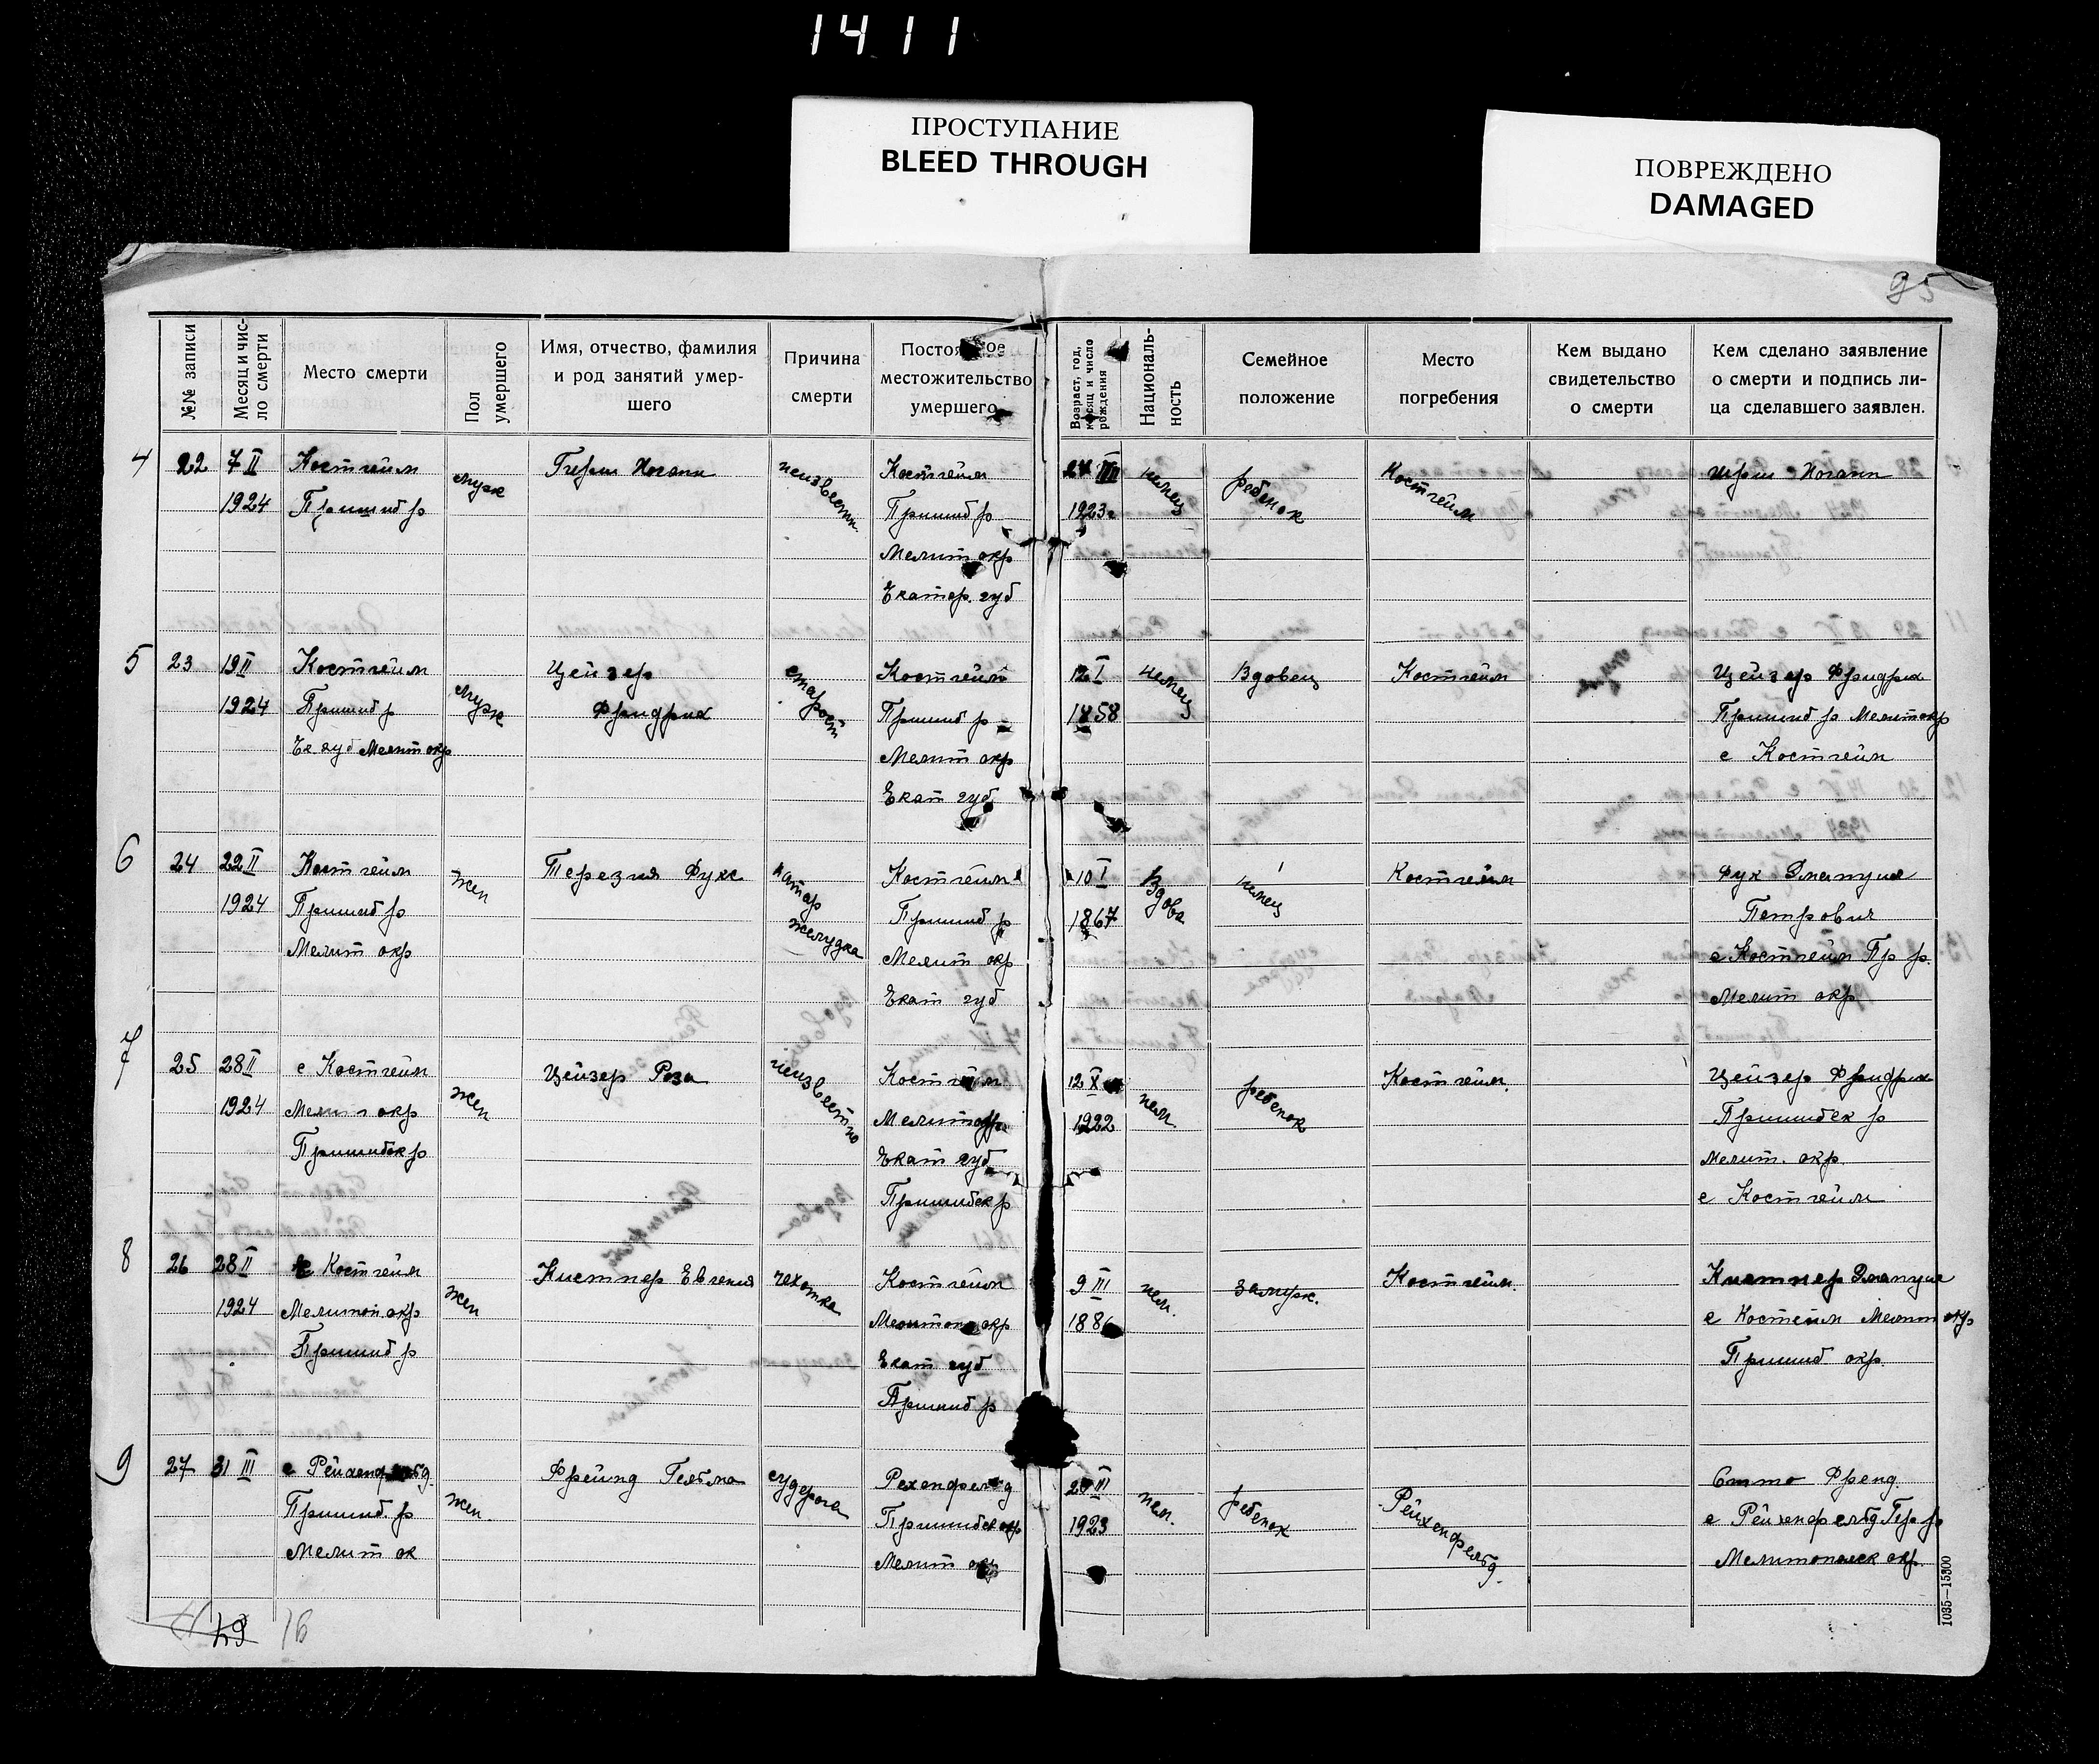 1411
ПРОСТУПАНИЕ
BLEED THROUGH
ПОВРЕЖДЕНО
DAMAGED
95
№№ записи
Месяц и чис-
ло смерти
Место смерти
Пол
умершего
Имя, отчество, фамилия
и род занятий умер-
шего
Причина
смерти
Постоянное
местожительство
умершего
Возраст, год,
месяц и число
рождения
Националь-
ность
Семейное
положение
Место
погребения
Кем выдано
свидетельство
о смерти
Кем сделано заявление
о смерти и подпись ли-
ца сделавшего заявлен.
4
22
7 II
1924
Костгейм
Пришиб р
муж
Иоганн
неизвестн
Костгейм
Пришиб р
Мелит окр
Екатер. губ
III
1923г
немец
ребенок
Костгейм
Иоганн
5
23
19 II
1924
Костгейм
Пришиб р
Ек губ Мелит окр
муж
Цейзер
Фридрих
старост
Костгейм
Пришиб р
Мелит окр
Екат губ
12 I
1858
немец
Вдовец
Костгейм
Цейзер Фридрих
Пришиб р Мелит окр
с Костгейм
6
24
22 II
1924
Костгейм
Пришиб р
Мелит окр
жен
Терезия Фукс
катар
желудка
Костгейм
Пришиб р
Мелит окр
Екат губ
10 I
1867
Вдова
немец
Костгейм
Фук Эмануил
Петрович
с Костгейм Пр р.
Мелит окр
7
25
28 II
1924
с Костгейм
Мелит окр
Пришибск р
жен
Цейзер Роза
неизвестно
Костгейм
Мелит окр
Екат губ
Пришибск р
12 X
1922
нем.
ребенок
Костгейм.
Цейзер Фридрих
Пришибск р
Мелит. окр.
с Костгейм
8
26
28 II
1924
с Костгейм
Мелитоп окр
Пришиб р
жен
Кистнер Евгения
чахотка
Костгейм
Мелитоп окр
Екат губ
Пришиб р
9 III
1886
нем.
замуж.
Костгейм.
Кистнер Эмануил
с Костгейм Мелит окр
Пришиб окр.
9
27
31 III
с Рейхенфельд.
Пришиб. р
Мелит ок
жен.
Фрейнд Гельма
судорога
Рехенфельд
Пришибск окр
Мелит окр
III
1923
нем.
ребенок
Рейхенфельд.
Отто Френд.
с Рейхенфельд Пр р
Мелитопольск окр.
1035—15300
49
16